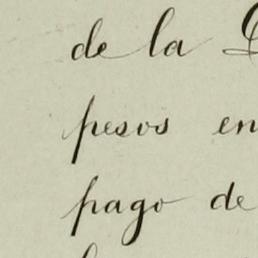 de la
pesos en
pago de